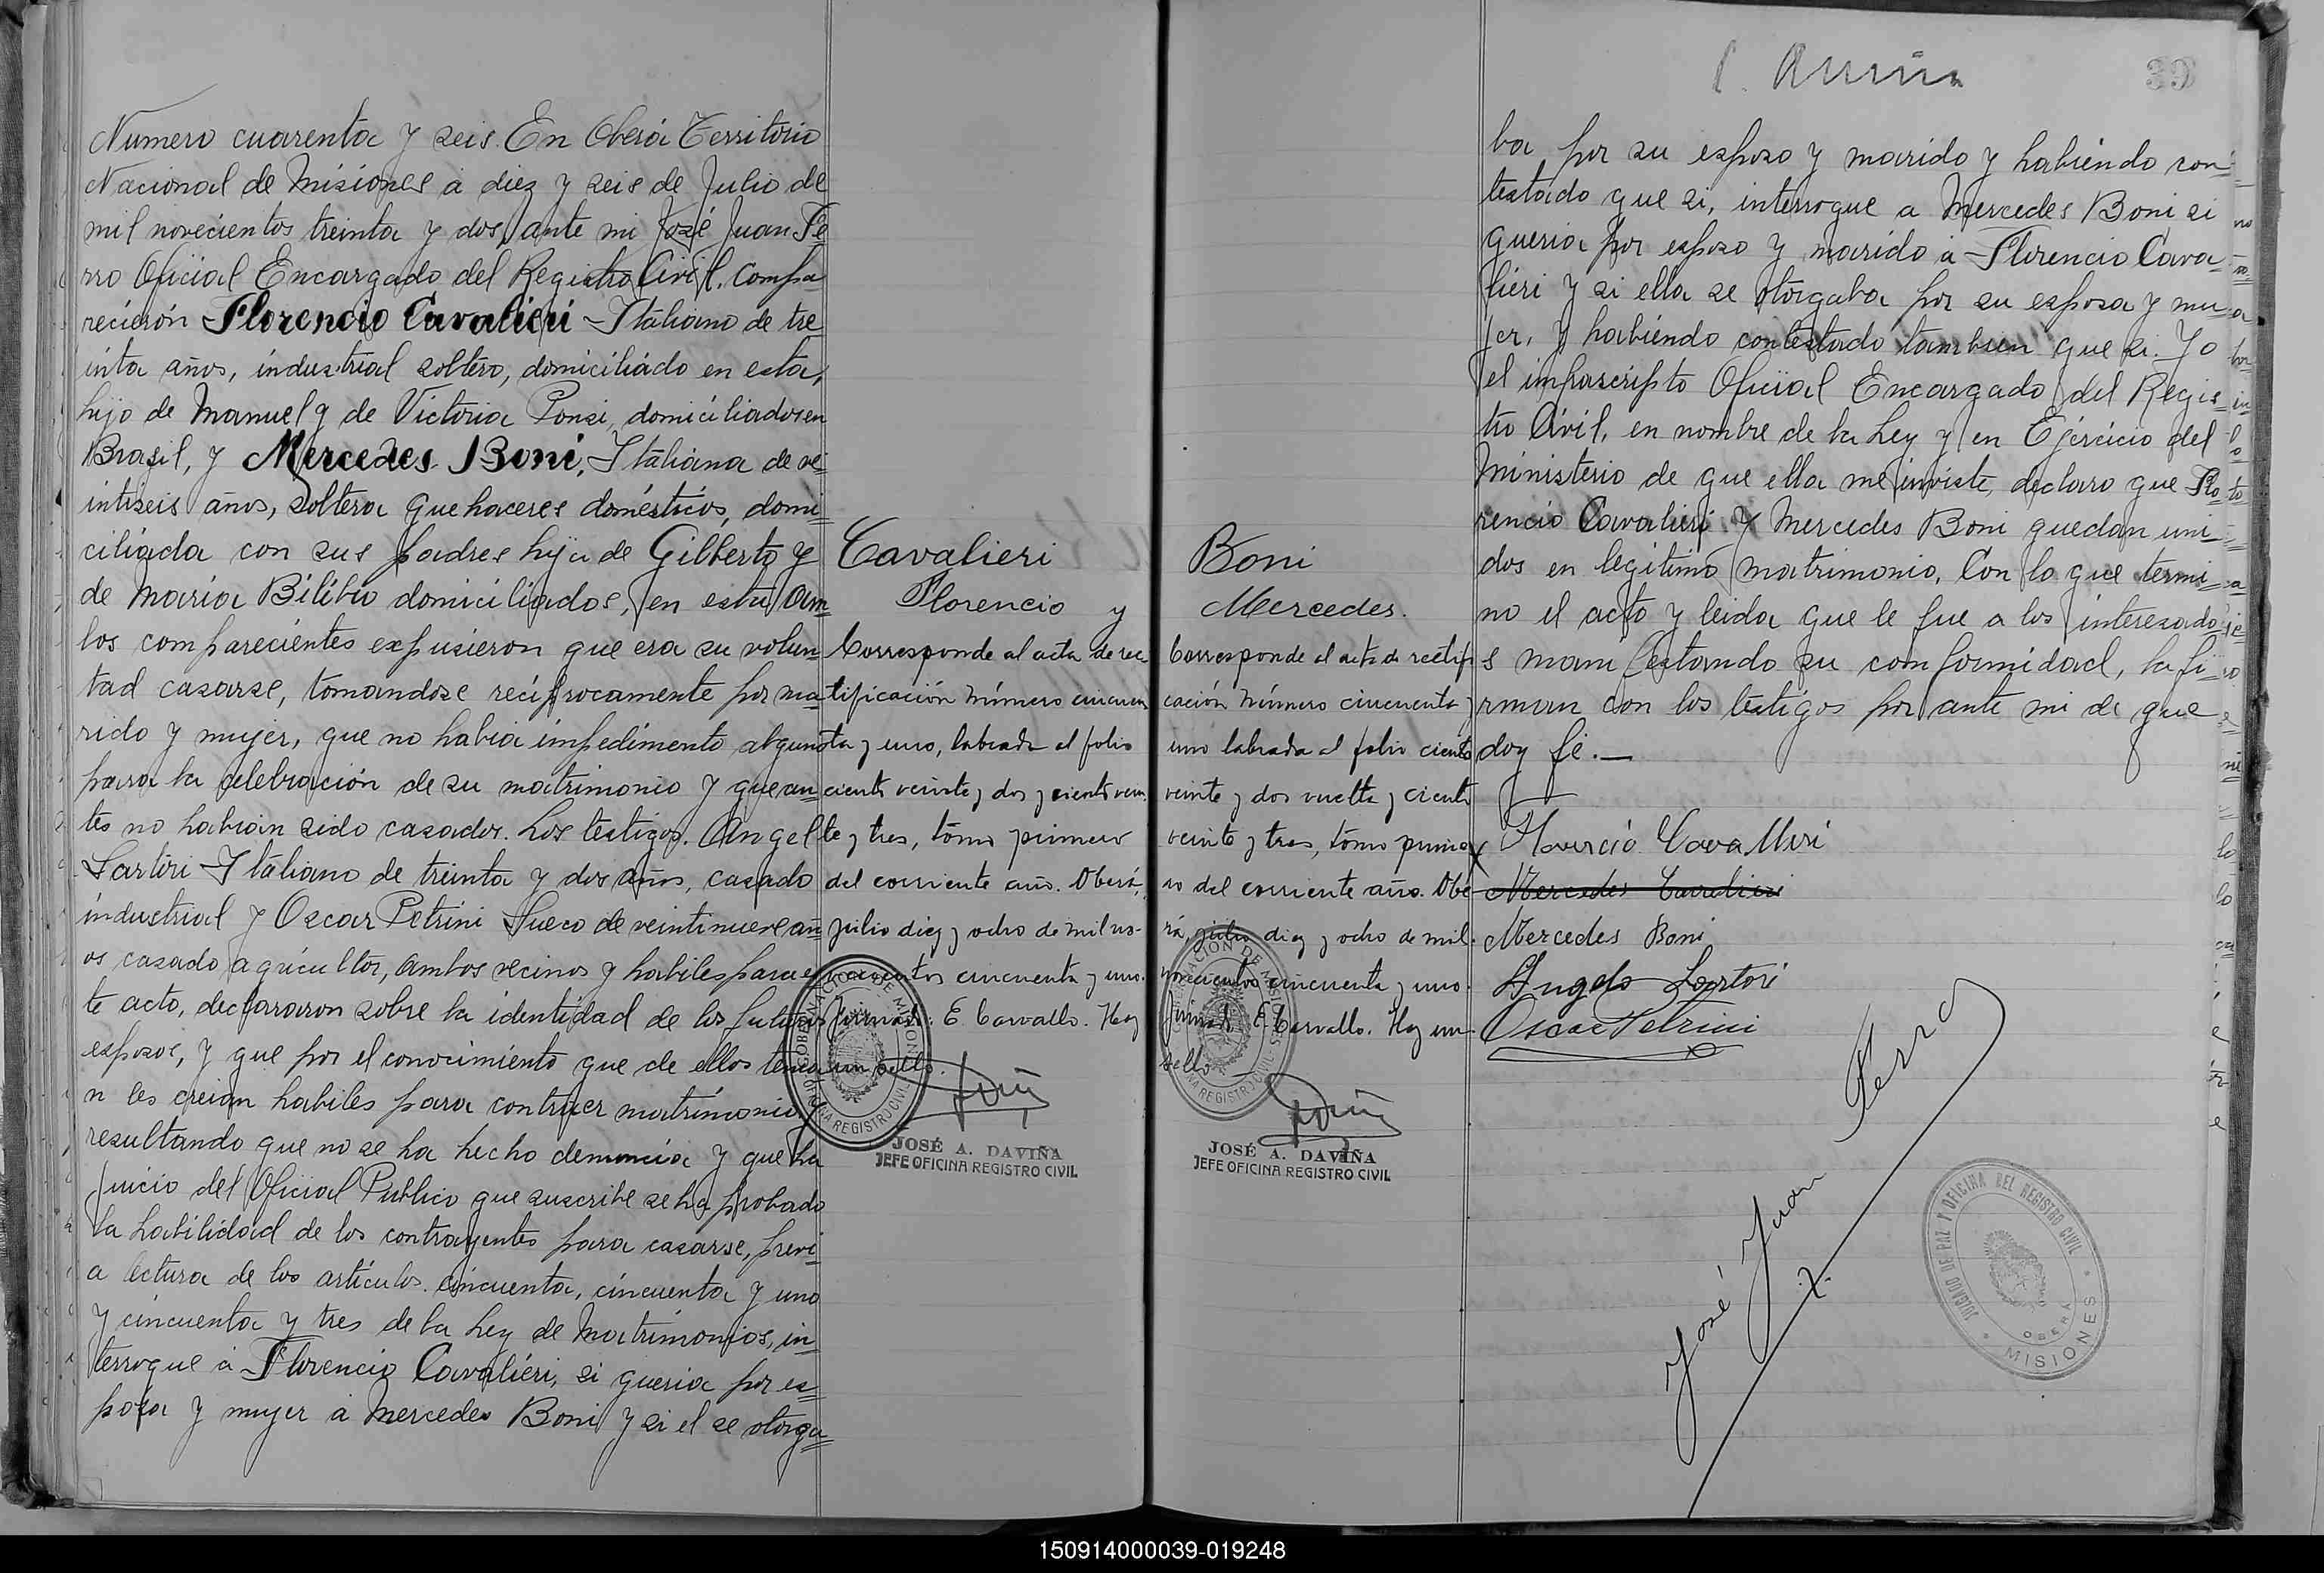 Numero cuarenta y seis. En Oberá Territorio
Nacional de Misiones a diez y seis de Julio de
mil novecientos treinta y dos, ante mi José Juan Fe=
rro Oficial Encargado del Registro Civil. Compa
recierón Florencio Cavalieri Italiano de tre
inta años, industrial soltero, domiciliado en esta,
hijo de Manuel y de Victoria Ponsi, domiciliados en
Brasil, y Mercedes Boni, Italiana de ve=
intiseis años, soltera quehaceres domésticos, domi=
ciliada con sus padres hija de Gilberto y
de Maria Bilibio domiciliados, en esta Am=
los comparecientes expusieron que era su volun=
tad casarse, tomandose recíprocamente por ma=
rido y mujer, que no habia impedimento alguno
para la celebración de su matrimonio y que an=
tes no habian sido casados. Los testigos. Angel
Sartiri Italiano de treinta y dos años, casado
industrial y Oscar Petrini Sueco de veintinueve añ=
os casado, agricultor, ambos vecinos y habiles para es
te acto, declararon sobre la identidad de los futuros
esposos, y que por el conocimiento que de ellos tenia
n les creian habiles para contraer matrimonio. y
resultando que no se ha hecho denuncia y que ha
Juicio del Oficial Publico que suscribe se ha probado
la habilidad de los contrayentes para casarse, previ=
a lectura de los artículos. cincuenta, cincuenta y uno
y cincuenta y tres de la Ley de Matrimonios, in=
terrogue a Florencio Cavalieri, si queria por es=
posa y mujer a Mercedes Boni y si el se otorga=
Cavalieri
Florencio y
Corresponde al acta de rec=
tificación número cincuen
ta y uno, labrada al folio
ciento veinte y dos y ciento vein
te y tres, tómo primero
del corriente año. Oberá,
julio diez y ocho de mil no-
vecientos cincuenta y uno.
Firmado: E. Carvallo. Hay
un sello.
GOBERNACION DE MISIONES
OFICINA REGISTRO CIVIL
JOSÉ A. DAVIÑA
JEFE OFICINA REGISTRO CIVIL
Boni
Mercedes.
Corresponde al acta de rectifi
cación número cincuenta y
uno labrada al folio ciento
veinte y dos vuelta y ciento
veinte y tres, tómo prime
ro del corriente año. Obe
rá, julio diez y ocho de mil
novecientos cincuenta y uno.
Firmado: E. Carvallo. Hay un
sello
GOBERNACION DE MISIONES
OFICINA REGISTRO CIVIL
JOSÉ A. DAVIÑA
JEFE OFICINA REGISTRO CIVIL
39
ba por su esposo y marido y habiendo con=
testado que si, interrogue a Mercedes Boni si
queria por esposo y marido a Florencio Cava=
lieri y si ella se otorgaba por su esposa y mu=
jer, y habiendo contestado tambien que si. Yo
el infrascripto Oficial Encargado del Regis=
tro Civil, en nombre de la Ley y en Ejercicio del
Ministerio de que ella me inviste, declaro que Flo=
rencio Cavalieri y Mercedes Boni quedan uni=
dos en legitimo matrimonio, Con lo que termi=
no el acto y leida que le fue a los interesado
s manifestando su conformidad, la fi=
rman con los testigos por ante mi de que
doy fé.—
Mercedes Cavalieri
Mercedes Boni
Angelo Sartori
Oscar Petrini
José Juan Ferro
JUZGADO DE PAZ Y OFICINA DEL REGISTRO CIVIL
OBERÁ
MISIONES
150914000039-019248